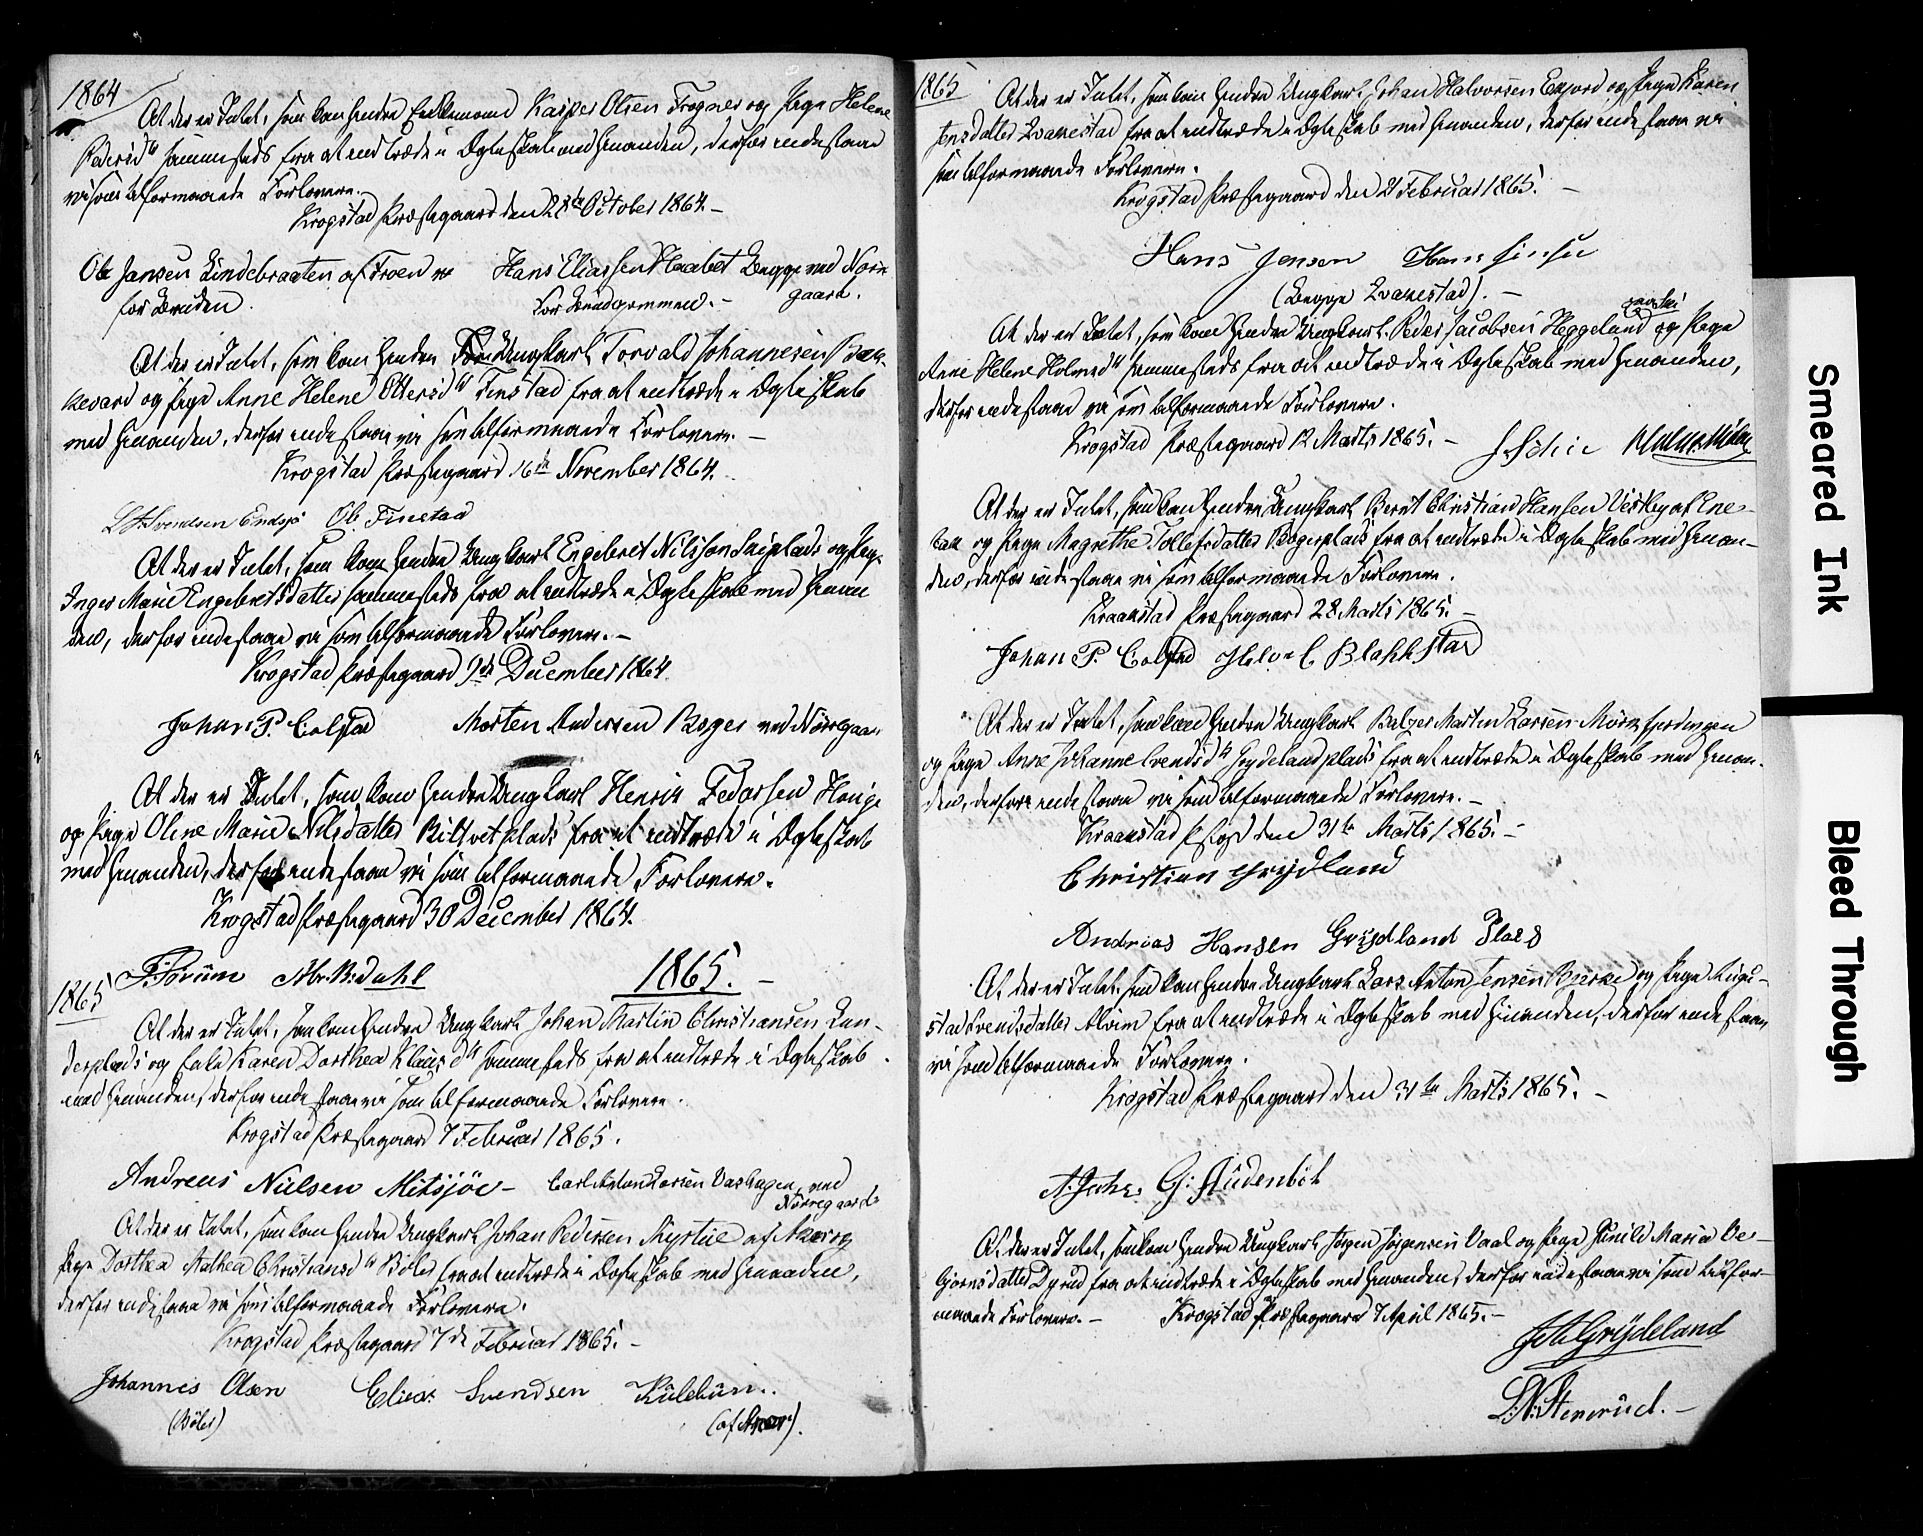 1864
At der er Intet, som kan hindre Enkemand Kasper Olsen Frogner og Pige Helene
Pedersdtr sammesteds fra at indtræde i Ægteskab med hinanden, derfor indestaae
vi som velformaaende Forlovere.
Krogstad Præstegaard den 28de October 1864 -
Ole Jansen Lindebraaten af Froen
for Bruden.
Hans Eliassen Haabet Begge med Haand-
for Brudgommen. -
At der er Intet, som kan hindre Ungkarl Torvald Johannesen Bæk-
kevard og Pige Anne Helene Ottersdtr Finstad fra at indtræde i Ægteskab
med hinanden, derfor indestaae vi som velformaaende Forlovere. -
Krogstad Præstegaard 16de November 1864.
Svendsen Endsjø Ole Finstad
At der er Intet, som kan hindre Ungkarl Engebret Nilsson og Pige
Inger Marie Engebretsdatter sammesteds fra at indtræde i Ægteskab med hinan
den, derfor indestaae vi som velformaaende Forlovere. -
Krogstad Præstegaard 9de December 1864
Johan P. Colstad Morten Andersen Boger
At der er Intet, som kan hindre Ungkarl Henrik Hauge
og Pige Oline Marie Nilsdatter plads fra at indtræde i Ægteskab
med hinanden, derfor indestaae vi som velformaaende Forlovere.
Krogstad Præstegaard 30 December 1864.
Dahl
1865. -
1865
At der er Intet, som kan hindre Ungkarl Johan Martin Christiansen Lun-
derplads og Enke Karen Dorthea Klausdtr sammesteds, fra at indtræde i Ægteskab
med hinanden, derfor indestaae vi som velformaaende Forlovere.
Krogstad Præstegaard 7 Februar 1865.
Andreas Nielsen Mitsjøe - Carl Anton Larsen
At der er Intet, som kan hindre Ungkarl Johan Pedersen af Aker og
Pige Dorthea Mathea Christiansdtr Bøler fra at indtræde i Ægteskab med hinanden,
derfor indestaae vi som velformaaende Forlovere.
Krogstad Præstegaard 7de Februar 1865. -
Johannes Olsen Elias Svendsen Kulebun.
(Bøler) (af Aker).
1865
At der er Intet, som kan hindre Ungkarl Johan Halvorsen og Pige Karen
Jensdatter Kvakestad fra at indtræde i Ægteskab med hinanden, derfor indestaae vi
som velformaaende Forlovere.
Krogstad Præstegaard den 21 Februar 1865. -
Hans Jensen Hans Jensen
(Begge Kvakestad). -
At der er Intet, som kan hindre Ungkarl Peder Jacobsen Heggeland og Pige
Anne Helene Holmsdtr sammesteds fra at indtræde i Ægteskab med hinanden,
derfor indestaae vi som velformaaende Forlovere.
Krogstad Præstegaard 12 Marts 1865. -
At der er Intet, som kan hindre Ungkarl Bernt Christian Hansen Vestby af Ene-
bak og Pige Magrethe Tollefsdatter Bogerplads fra at indtræde i Ægteskab med hinan-
den, derfor indestaae vi som velformaaende Forlovere.
Kraakstad Præstegaard 28 Marts 1865. -
Johan P. Colstad Blakkstad
At der er Intet, som kan hindre Ungkarl Balzer Martin Larsen Mørkfjerdingen
og Pige Anne Johanne Svendsdtr Grydelandplads fra at indtræde i Ægteskab med hinan-
den, derfor indestaae vi som velformaaende Forlovere. -
Kraakstad den 31te Marts 1865. -
Christian Grydland
Andreas Hansen Grydland Plads
At der er Intet, som kan hindre Ungkarl Lars Anton Jensen Bjerke og Pige Augu-
sta Svendsdatter Alvim fra at indtræde i Ægteskab med hinanden, derfor indestaae
vi som velformaaende Forlovere.
Krogstad Præstegaard den 31te Marts 1865. -
G: Audenbøl
At der er Intet, som kan hindre Ungkarl Jørgen Jørgensen Vaal og Pige Gunild Maria Be-
Dyrud fra at indtræde i Ægteskab med hinanden, derfor indestaae vi som velfor-
maaende Forlovere. - Krogstad Præstegaard 7 April 1865. -
Grydeland
Stenerud. -
Smeared Ink
Bleed Through